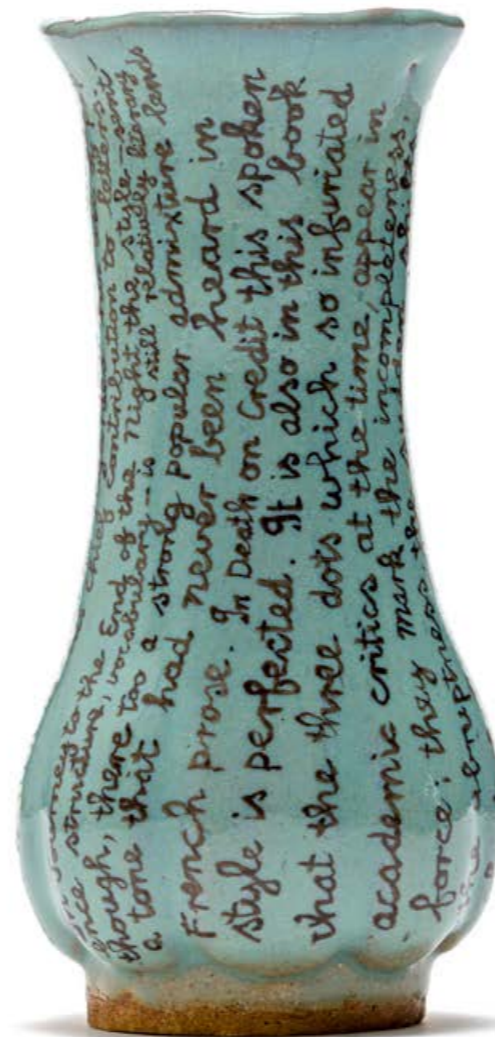 chief contribution to letters
journey to the End of the Night the style - sent
ence structure, vocabulary - is still relatively literary
though, there too a strong popular admixture lends
a tone that had never been heard in
French prose. In Death on Credit this spoken
style is perfected. It is also in this book
that the three dots which so infuriated
academic critics at the time, appear in
force; they mark the incompleteness
the abruptness, the